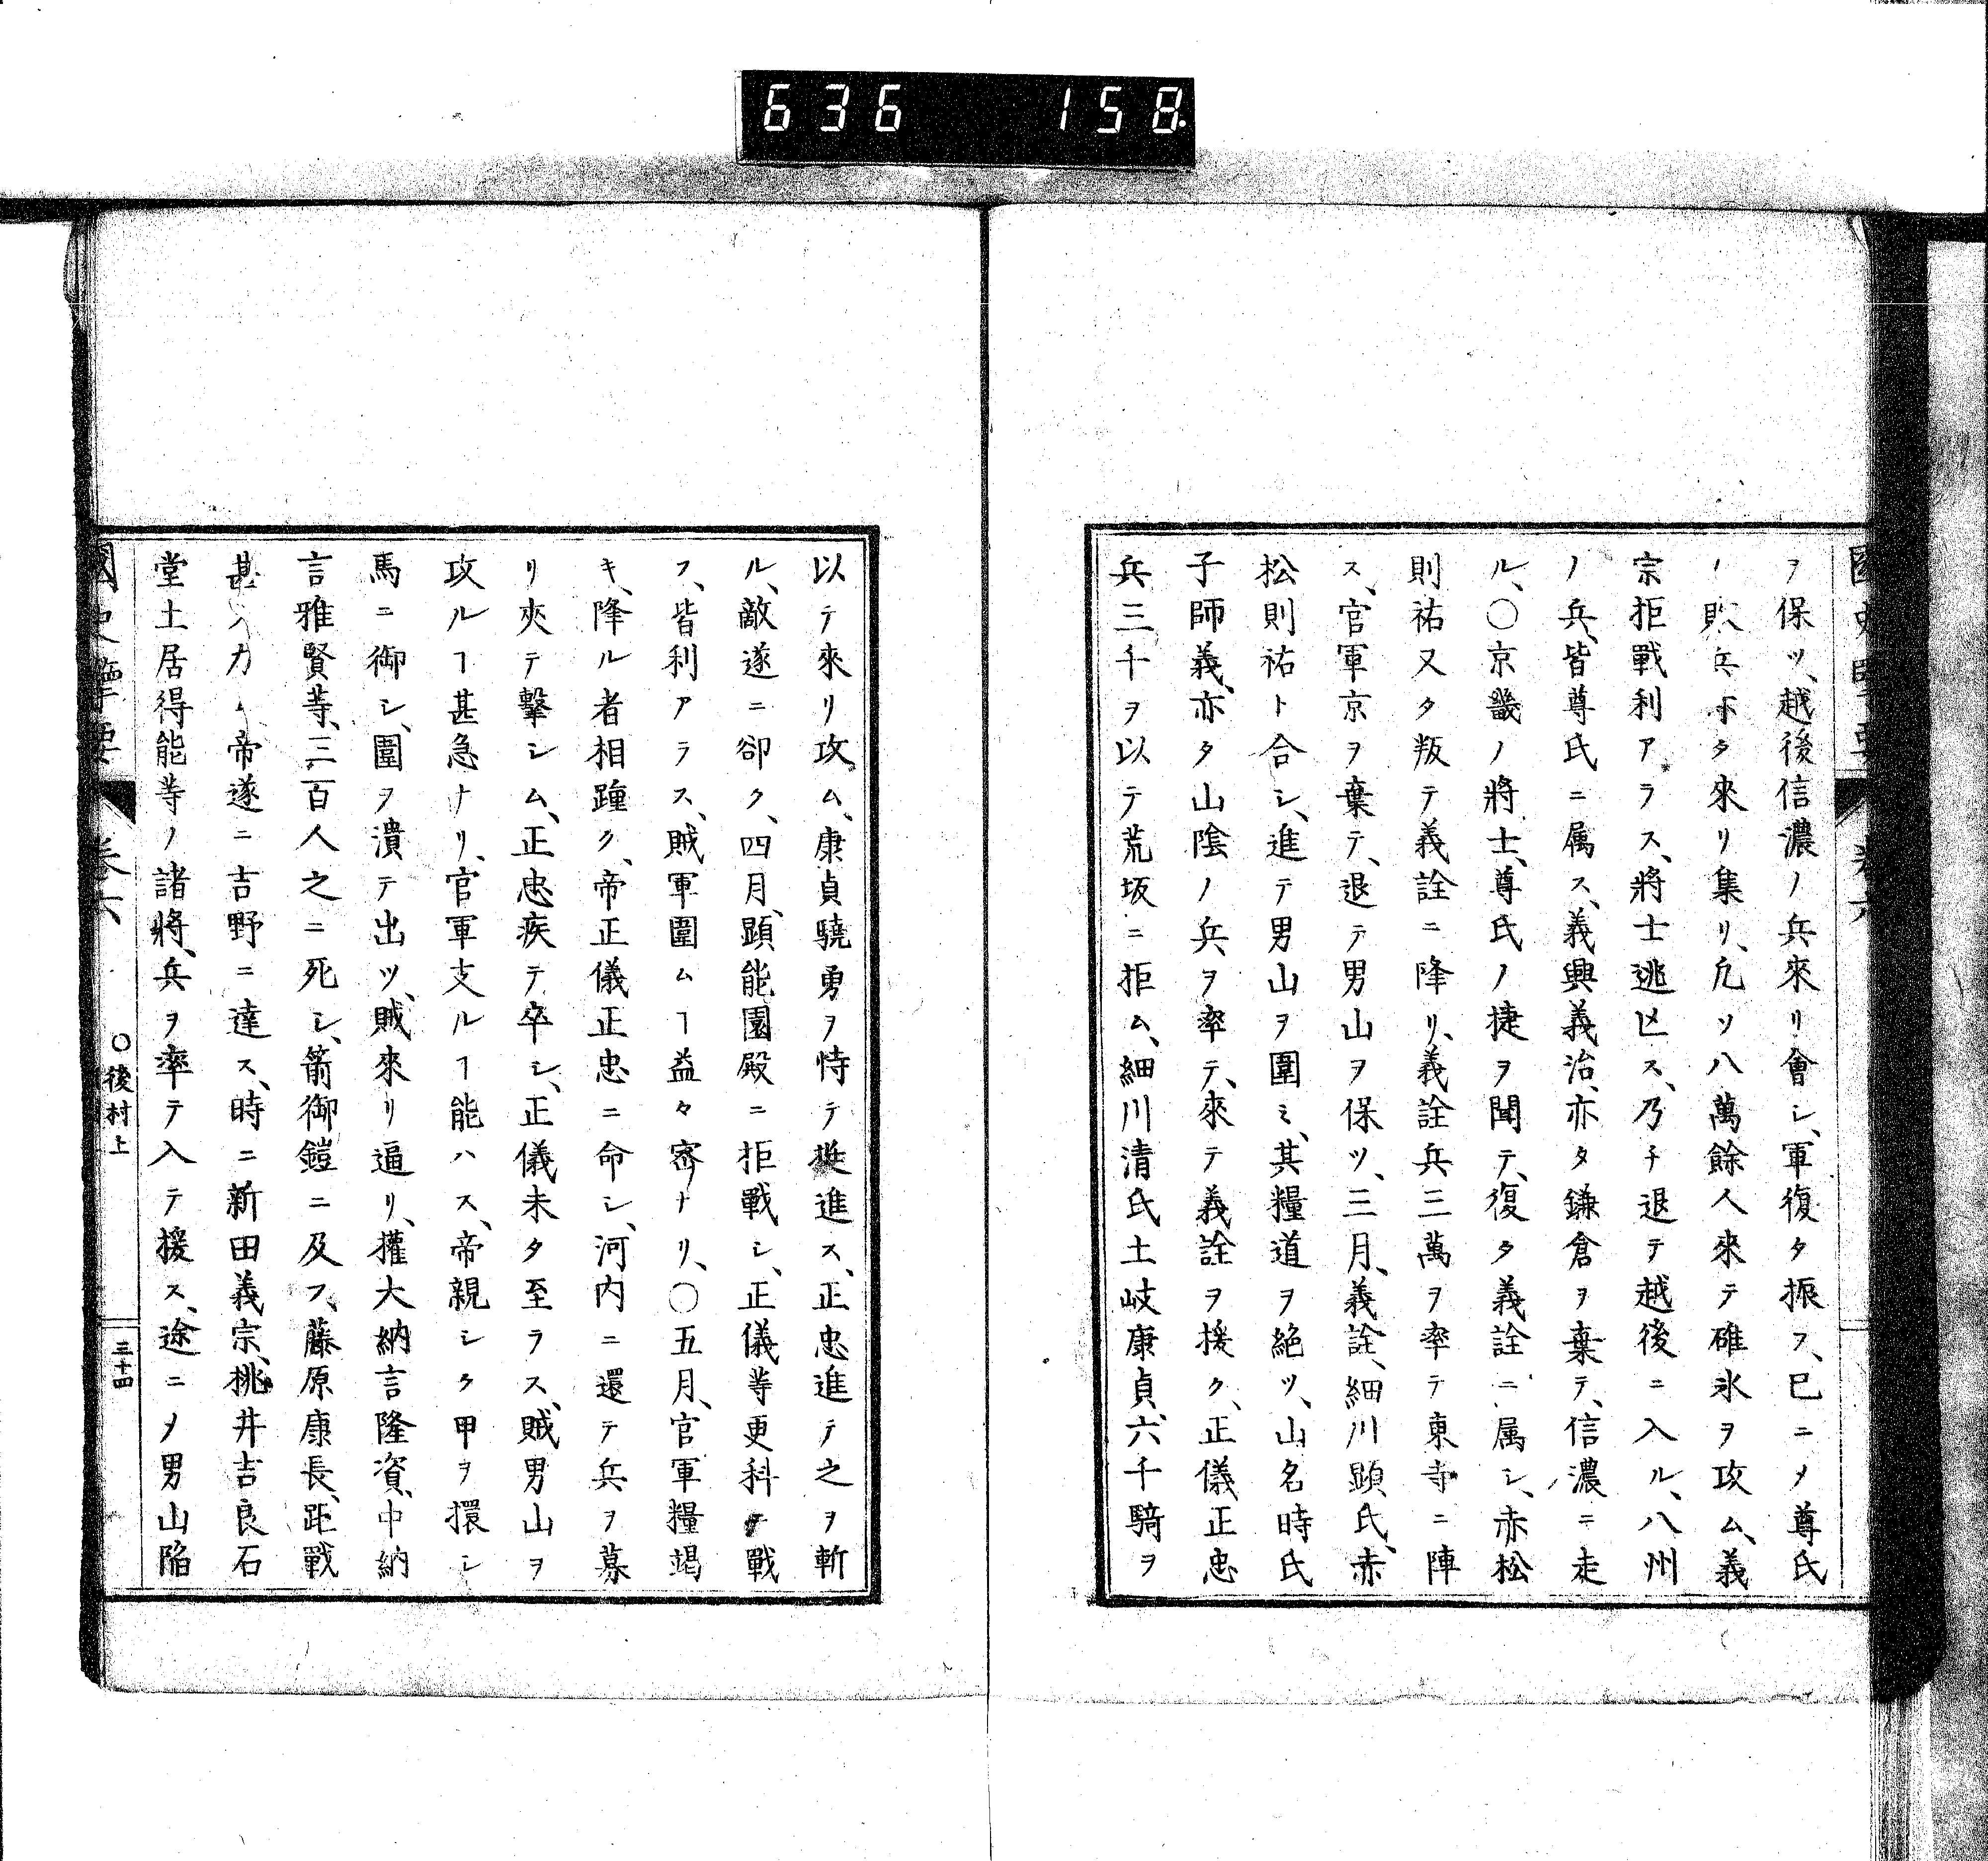 636 158
ヲ保ツ、越後信濃ノ兵來リ會シ、軍復タ振ヲ、已ニメ尊氏
ノ敗兵亦タ來リ集リ、凢ソ八萬餘人來テ碓氷ヲ攻ム、義
宗拒戰利アラス、將士逃亾ス、乃チ退テ越後ニ入ル、八州
ノ兵、皆尊氏ニ属ス、義興義治、亦タ鎌倉ヲ棄テ、信濃ニ走
ル、〇京畿ノ將士、尊氏ノ捷ヲ聞テ、復タ義詮ニ属シ、赤松
則祐又タ叛テ義詮ニ降リ、義詮兵三萬ヲ率テ東寺ニ陣
ス、官軍京ヲ棄テ、退テ男山ヲ保ツ、三月、義詮、細川顕氏、赤
松則祐ト合シ、進テ男山ヲ圍ミ、其糧道ヲ絶ツ、山名時氏
子師義、亦タ山陰ノ兵ヲ率テ、來テ義詮ヲ援ク、正儀正忠
兵三千ヲ以テ荒坂ニ拒ム、細川清氏土岐康貞、六千騎ヲ
以テ來リ攻ム、康貞驍勇ヲ恃テ挺進ス、正忠進テ之ヲ斬
ル、敵遂ニ卻ク、四月、顕能園殿ニ拒戰シ、正儀等更科ニ戰
フ、皆利アラス、賊軍圍ムヿ益々密ナリ、〇五月、官軍糧竭
キ、降ル者相踵ク、帝正儀正忠ニ命シ、河内ニ還テ兵ヲ募
リ夾テ擊シム、正忠疾テ卒シ、正儀未タ至ラス、賊男山ヲ
攻ルヿ甚急ナリ、官軍支ルヿ能ハス、帝親シク甲ヲ擐シ
馬ニ御シ、圍ヲ潰テ出ツ、賊來リ逼リ、權大納言隆資、中納
言雅賢等、三百人之ニ死シ、箭御鎧ニ及フ、藤原康長、距戰
甚タ力ム帝遂ニ吉野ニ達ス、時ニ新田義宗、桃井吉良石
堂土居得能等ノ諸將、兵ヲ率テ入テ援ス、途ニメ男山陥
國史擥要 卷六 〇後村上 三十四